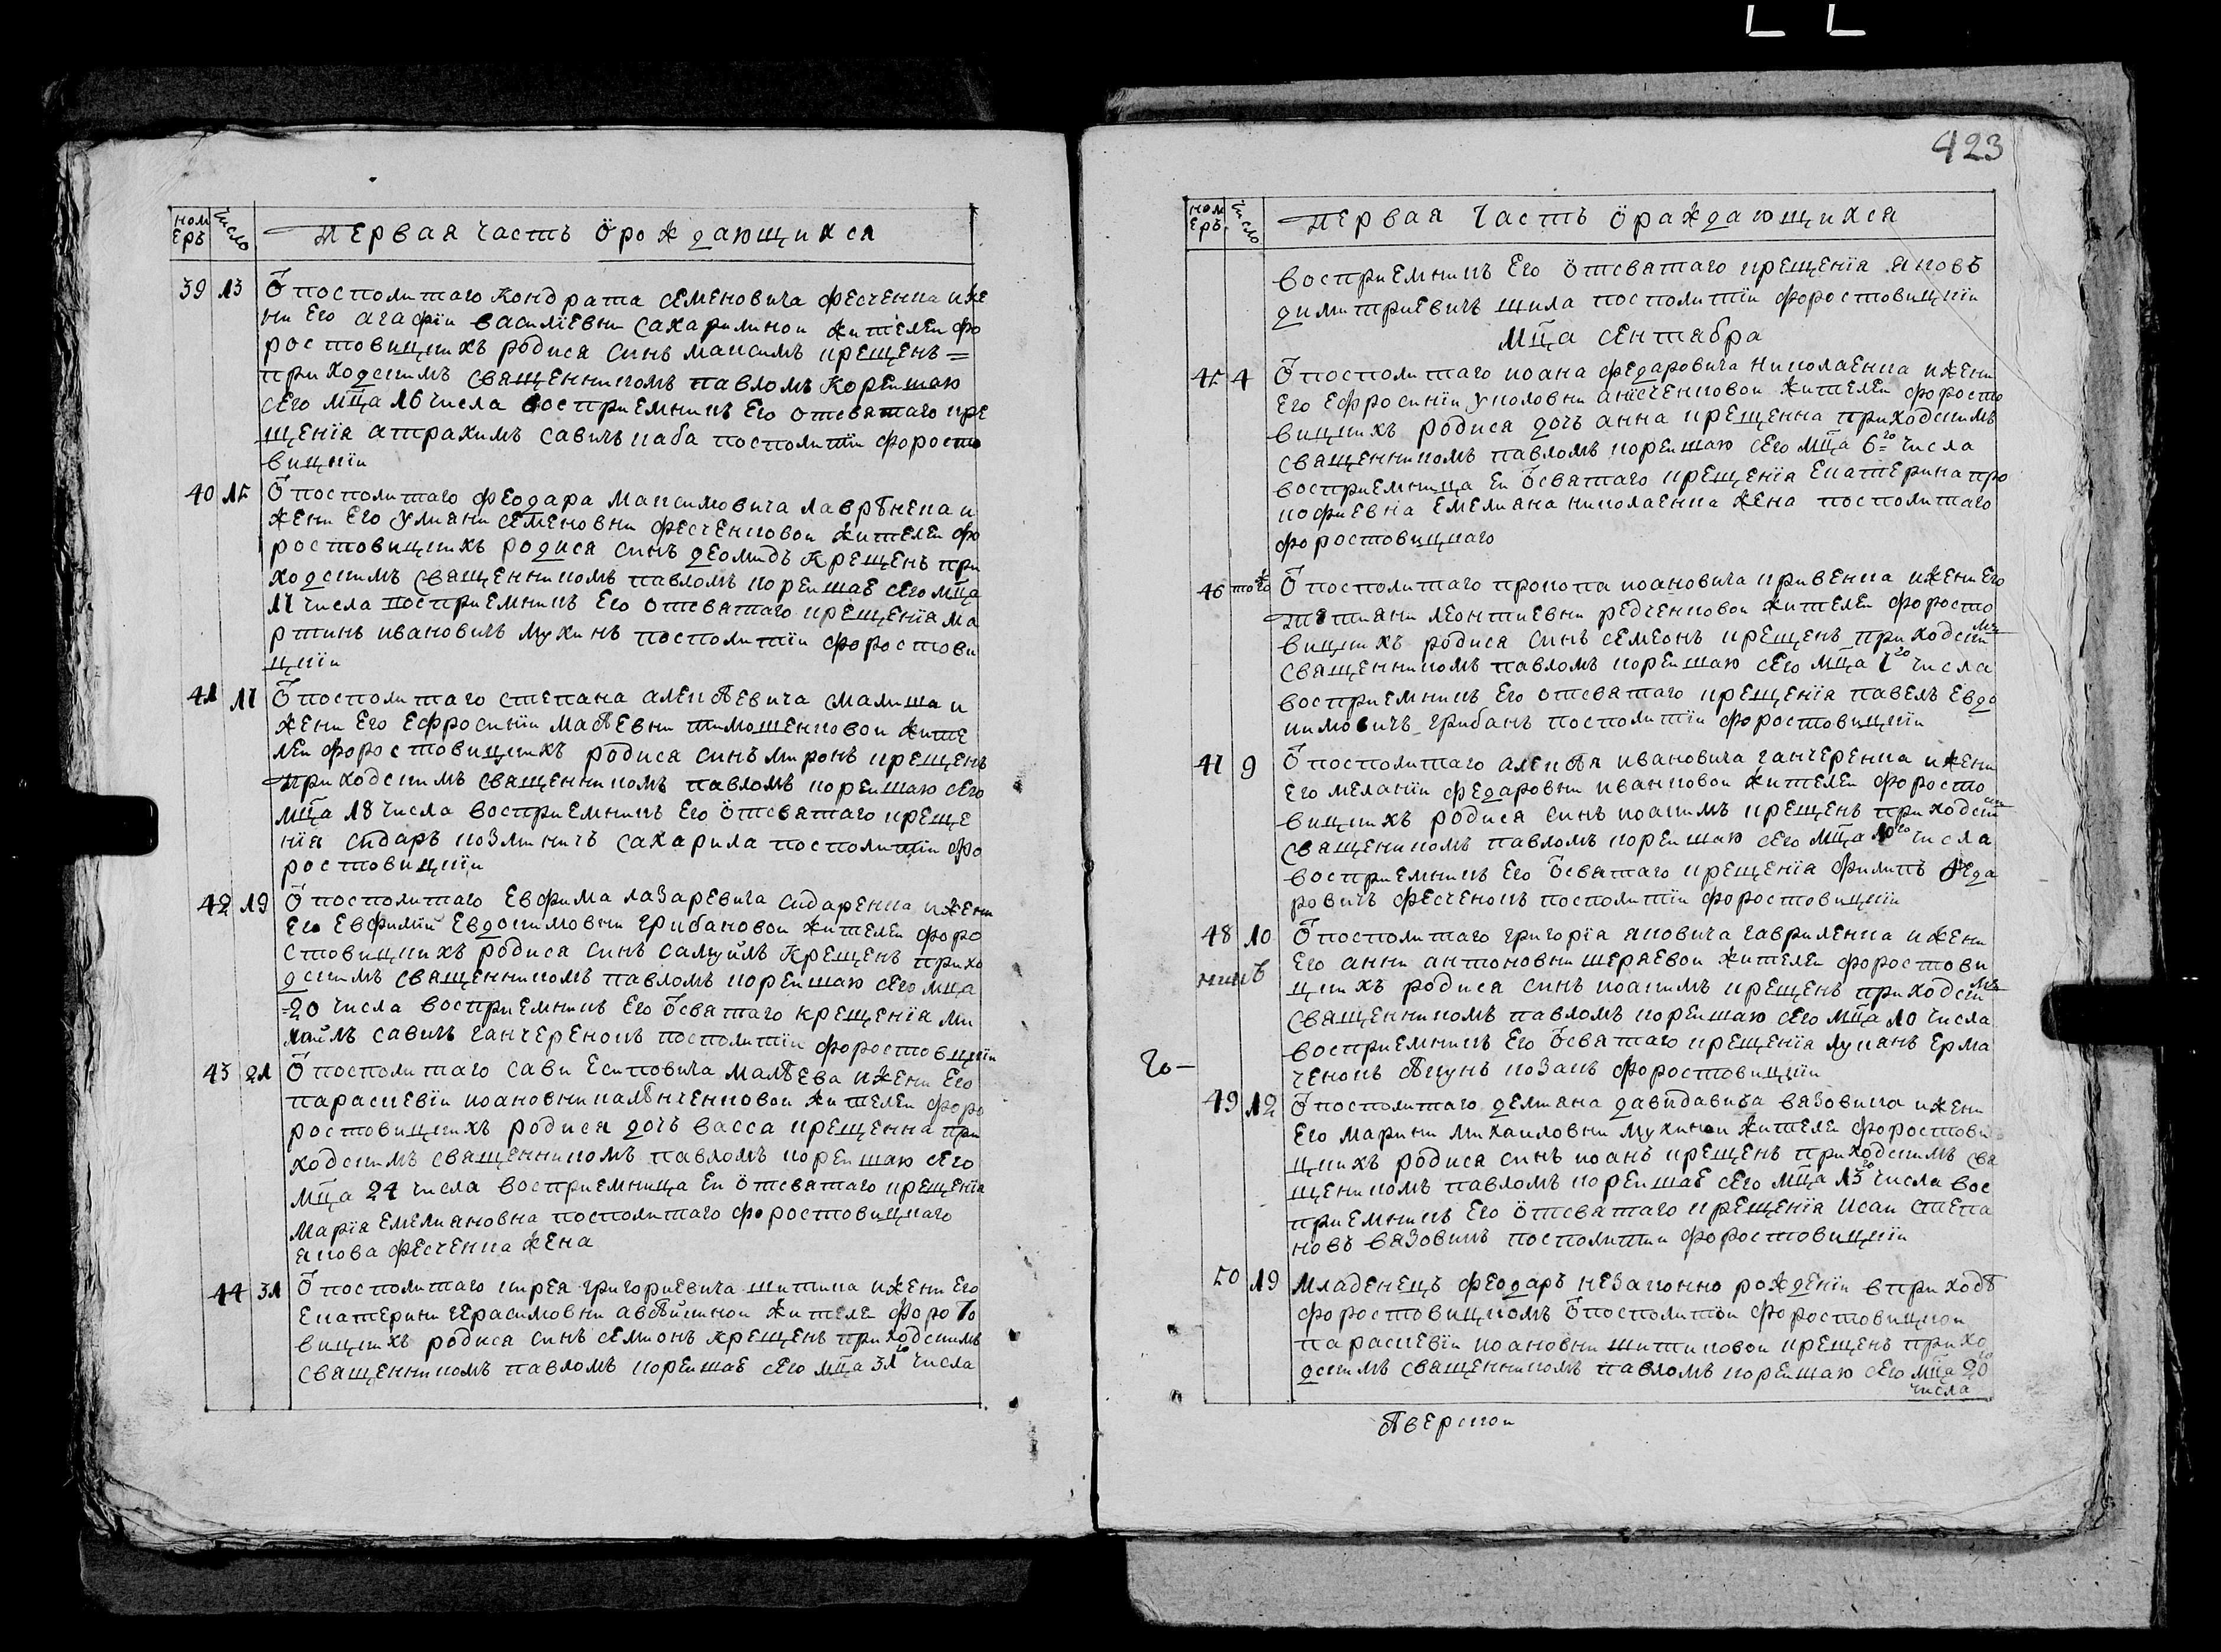 423
номеръ число Первая часть ѿ рождающихся
39 13 Ѿ посполитаго Кондрата семеновича фесченка и же
ни его агафіи василїевни сахарилинои жителеи фо
ростовицкихъ родися синъ максимъ крещенъ =
приходскимъ священникомъ павломъ Кореишаю
сего мца 16 числа восприемникъ его отсвятаго кре
щенїя атрахимъ савичъ каба посполитїи форосто
вицкїи
40 15 Ѿ посполитаго феодара максимовича лаврѣнека и
жени его улияни семеновни фесченковои жителеи фо
ростовицкихъ родися синъ деомидъ крещенъ при
ходскимъ священникомъ павломъ корейшаѣ сего мца
17 числа восприемникъ его отсвятаго крещенїя ма
ртинъ ивановичъ мухинъ посполитїи форостови
цкїи
41 17 Ѿ посполитаго степана алеѯѣевича смалиша и
жени его ефросинїи маѳѣевни тимошенковои жите
леи форостовицкихъ родися синъ миронъ крещенъ
приходскимъ священникомъ павломъ кореишаю сего
мца 18 числа восприемникъ его ѿтсвятаго креще
нїя сидаръ козминичъ сахарила посполитїи фо
ростовицкїи
42 19 Ѿ посполитаго евфима лазаревича сидаренка и жени
его евфимїи евдокимовни грибановои жителеи форо
стовицкихъ родися синъ самуйлъ крещенъ прихо
дскимъ священникомъ павломъ кореишаю сего мца
20 числа восприемникъ его ѿсвятаго крещенїя ми
хайлъ савичъ ганчеренокъ посполитїи форостовицкїи
43 21 Ѿ посполитаго сави есиповича малѣева и жени его
параскевїи иоановни калѣнченковои жителеи форо
ростовицкихъ родися дочъ васса крещенна при
ходскимъ священникомъ павломъ кореишаю сего
мца 24 числа восприемница еи ѿтсвятаго крещенїя
марїя емелияновна посполитаго форостовицкаго
якова фесченка жена
44 31 Ѿ посполитаго кирея григориевича шитика и жени его
екатерини герасимовни авѣйшинои жителеи форото
вицкихъ родися синъ семионъ крещенъ приходскимъ
священникомъ павломъ корейшаѣ сего мца 31го числа
номеръ число Первая часть ѿ раждающихся
восприемникъ его ѿтсвятаго крещенїя яковъ
димитриевичъ шила посполитїи форостовицкїи
мца сентабра
45 4 Ѿ посполитаго иоана федаровича николаенка и жени
его ефросинїи уколовни анїсченковои жителеи форосто
вицкихъ родися дочъ анна крещенна приходскимъ
священникомъ павломъ кореишаю сего мца 6го числа
восприемница еи ѿсвятаго крещенїя екатерина про
кофиевна емелияна николаенка жена посполитаго
форостовицкаго
46 того ж Ѿ посполитаго прокопа иоановича кривенка и жени его
татияни леонтиевни редченковои жителеи форосто
вицкихъ родися синъ семеонъ крещенъ приходскимъ
священникомъ павломъ кореишаю сего мца 7го числа
восприемникъ его отсвятаго крещенїя павелъ евдо
кимовичъ грибанъ посполитїи форостовицкїи
47 9 Ѿ посполитаго алеѯѣя ивановича ганчеренка и жени
его меланїи федаровни иванковои жителеи форосто
вицкихъ родися синъ иоакимъ крещенъ приходскимъ
священикомъ павломъ кореишаю сего мца 10го числа
восприемникъ его ѿсвятаго крещенїя филипъ феда
ровичъ фесченокъ посполитїи форостовицкїи
48 10 Ѿ посполитаго григорїя яковича гавриленка и жени
его анни антоновни шеряевои жителеи форостови
цкихъ родися синъ иоакимъ крещенъ приходскимъ
священникомъ павломъ кореишаю сего мца 10 числа
восприемникъ его ѿсвятаго крещенїя лукянъ ерма
ченокъ козакъ форостовицкїи
49 12 Ѿ посполитаго демяна давидавича вазовика и жени
его марини михаиловни мухинои жителеи форостови
цкихъ родися синъ иоанъ крещенъ приходскимъ свя
щеникомъ павломъ кореишаѣ сего мца 13го числа вос
приемникъ его ѿтсвятаго крещенїя исаи степа
новъ вазовикъ посполитїи форостовицкїи
50 19 Младенецъ феодаръ незаконно рожденїи в приходѣ
форостовицкомъ ѿ посполитои форостовицкои
параскевїи иоановни шитиковои крещенъ прихо
дскимъ священникомъ павломъ кореишаю сего мца 20го
числа